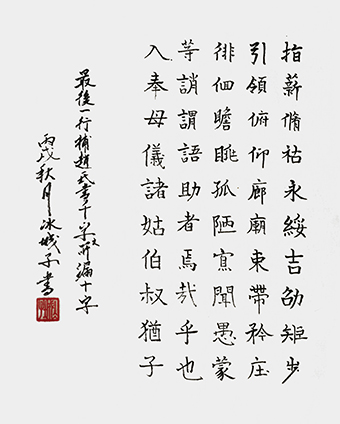 指薪脩祜永綏吉劭矩步
引領俯仰廊廟束帶矜庄
徘徊瞻眺孤陋寡聞愚蒙
等誚謂語助者焉哉乎也
入奉母儀諸姑伯叔猶子
最後一行補趙氏書千字文所漏十字
丙戌秋月冰城子書